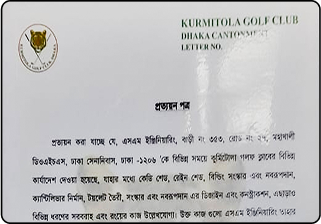 KURMITOLA GOLF CLUB
DHAKA CANTONMENT
LETTER NO.
প্রত্যয়ন পত্র
প্রত্যয়ন করা যাচ্ছে যে, এসএম ইঞ্জিনিয়ারিং, বাড়ী নং ৩৫৩, রোড নং মহাখালী
ডিওএইচএস, ঢাকা সেনানিবাস, ঢাকা -১২০৬ 'কে বিভিন্ন সময়ে কুর্মিটোলা গলফ ক্লাবের বিভিন্ন
কার্যাদেশ দেওয়া হয়েছে, যাহার মধ্যে কেডি শেড, রেইন শেড, বিল্ডিং সংস্কার এবং নবরূপদান,
ক্যান্টিলিভার নির্মান, টয়লেট তৈরী, সংস্কার এবং নবরূপদান এর ডিজাইন এবং কনস্ট্রাকশন, এছাড়াও
বিভিন্ন ধরণের সরবরাহ এবং রংয়ের কাজ উল্লেখযোগ্য। উক্ত কাজ গুলো এসএম ইঞ্জিনিয়ারিং তাহার